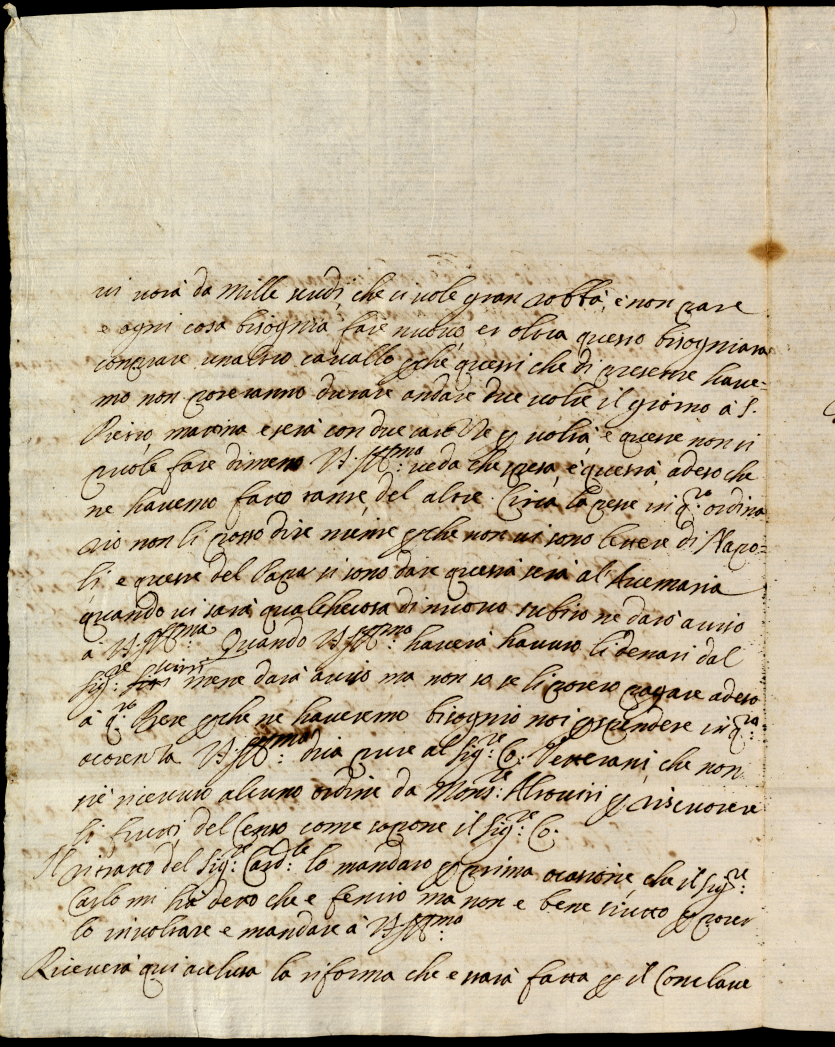 vi vorà da Mille scudi, che ci vole gran robba, e non pare
e ogni cosa bisognia fare nuovo, et oltra questo bisogniara
comprare un altro cavallo p che questi che di presente have-
mo non poteranno durare andare due volte il giorno à S.
Pietro, matina e sera con due carozze p volta, e queste non si
puole fare dimeno V.S. Ill.ma: veda che spesa, e questa, adeso che
ne havemo fatto tante, del altre. Circa la peste in q.to ordina
rio non li posso dire niente p che non vi sono lettere di Napo=
li, e queste del Papa si sono date questa sera al Avemaria
quando vi sarà qualchecosa di nuovo subito ne darò aviso
a V.S. Ill.ma Quando V.S. Ill.ma: haverà hauto li denari dal
Sig.re mene darà aviso ma non so se li potero pagare adeso
à q.to Bere p che ne haveremo bisognio noi p spendere in q.ta
ocorenza V.S. Ill.ma: dica pure al Sig.re Co: Veterani, che non
ne ricevuto alcuno ordine da Mons.re Altoviti p riscuotere
li frutti del Censo come supone il Sig.re Co.
Il ritratto del Sig.re Card.le lo mandaro p prima ocasione, che il Sig.re:
Carlo mi hà detto che e fenito ma non e bene sciutto p poter
lo involtare e mandare à V.S. Ill.ma
Riceverà qui aclusa la riforma che e stata fatta p il Conclave